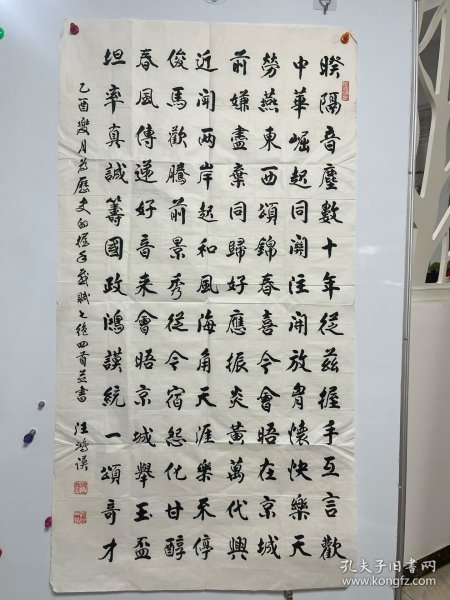 暌隔音塵數十年從茲握手互言歡
中華崛起同關注開放胷懷快樂天
勞燕東西頌錦春喜今會晤在京城
前嫌盡棄同歸好應振炎黃萬代興
近聞兩岸起和風海角天涯樂不停
俊馬歡騰前景秀從今宿怨化甘醇
春風傳遞好音來會晤京城舉玉盃
坦率真誠籌國政鴻謨統一頌奇才
乙酉月為歷史的握手感賦七絕四首並書 汪
孔夫子旧书网
www.kongfz.com